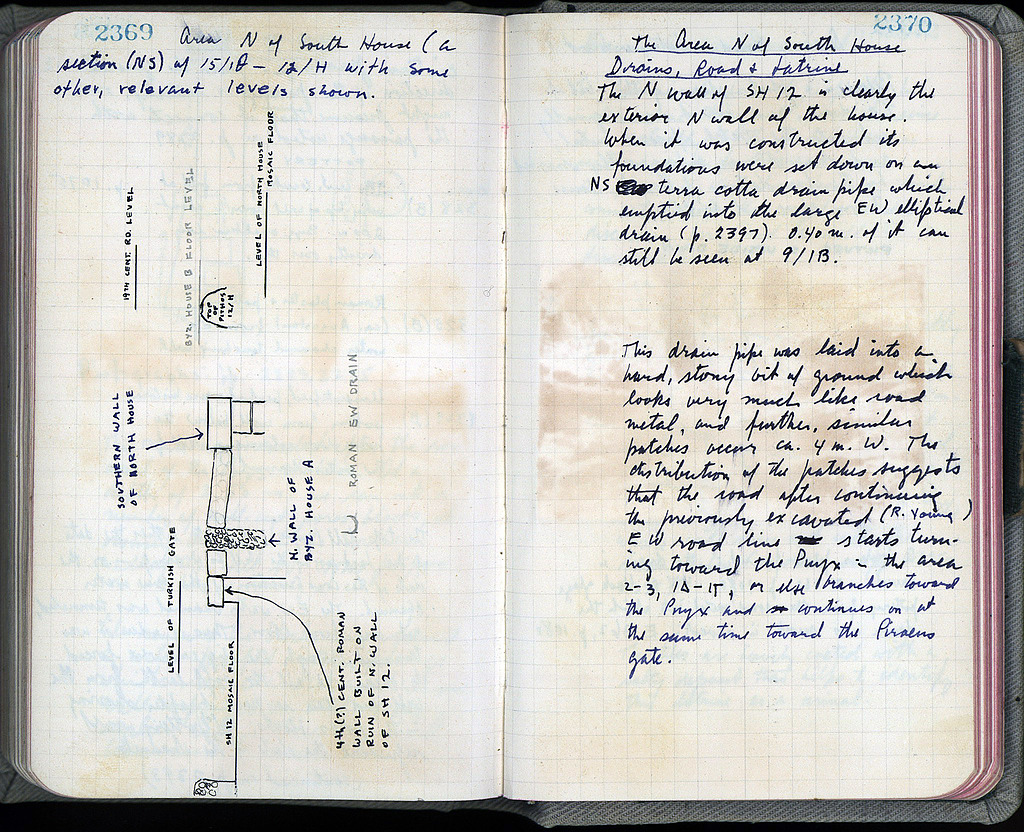 2369
Area N of South House (a
section (NS) of 15/1Θ – 12/H with some
other, relevant levels shown.
19TH CENT. RD. LEVEL
BYZ. HOUSE B FLOOR LEVEL
LEVEL OF NORTH HOUSE
MOSAIC FLOOR
TOP
OF
PITHOS
12/H
SOUTHERN WALL
OF NORTH HOUSE
ROMAN EW DRAIN
N. WALL OF
BYZ. HOUSE A
LEVEL OF TURKISH GATE
SH 12 MOSAIC FLOOR
4th(?) CENT. ROMAN
WALL BUILT ON
RUIN OF N. WALL
OF SH 12.
2370
The Area N of South House
Drains, Road & Latrine
The N wall of SH 12 is clearly the
exterior N wall of the house.
When it was constructed its
foundations were set down on an
NS terra cotta drain pipe which
emptied into the large EW elliptical
drain (p. 2397). 0.40 m. of it can
still be seen at 9/1B.
This drain pipe was laid into a
hard, stony bit of ground which
looks very much like road
metal, and further, similar
patches occur ca. 4 m. W. The
distribution of the patches suggests
that the road after continuing
the previously excavated (R. Young)
EW road line starts turn-
ing toward the Pnyx in the area
2-3, or else branches toward
the Pnyx and continues on at
the same time toward the Piraeus
gate.